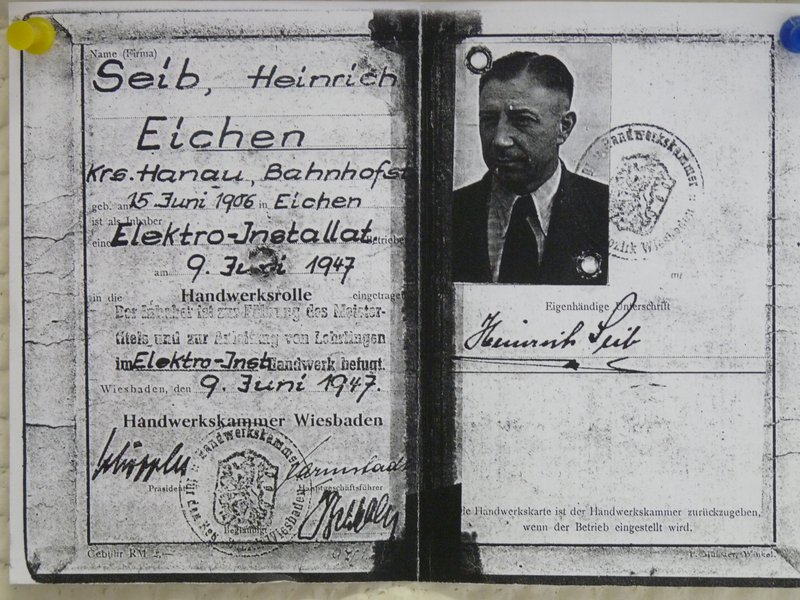 Name (Firma)
Seib, Heinrich
Eichen
Krs. Hanau, Bahnhofst
geb. am 15. Juni 1906 in Eichen
ist als Inhaber
eines Elektro-Installat. Betriebes
am 9. Juni 1947
in die Handwerksrolle eingetragen
Der Inhaber ist zur Führung des Meister-
titels und zur Anleitung von Lehrlingen
im Elektro-Inst. Handwerk befugt.
Wiesbaden, den 9. Juni 1947.
Handwerkskammer Wiesbaden
Präsident
Hauptgeschäftsführer
Beglaubigt
Gebühr RM 2,—
Handwerkskammer
Wiesbaden
Eigenhändige Unterschrift
Heinrich Seib
Handwerkskarte ist der Handwerkskammer zurückzugeben,
wenn der Betrieb eingestellt wird.